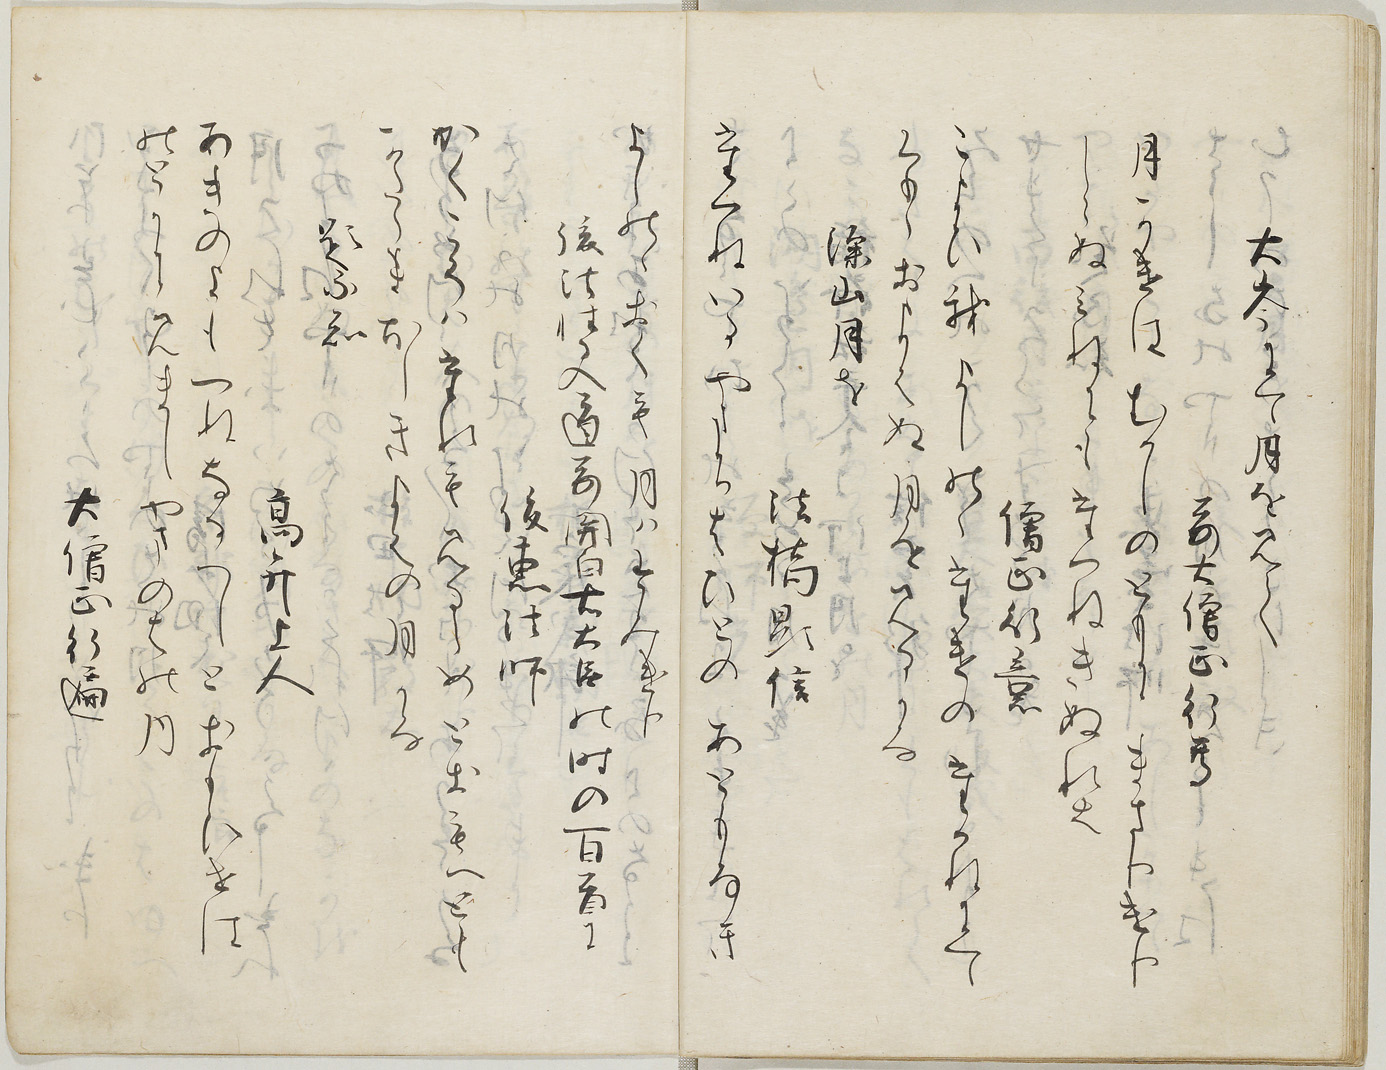 大峯にて月をみて
前大僧正行尊
月かけはむかしのともにまさりけり
しらぬみねにもたつねきぬれは
僧正行意
こよひ我よしのゝたけのたかねにて
くもゝおよはぬ月をみるかな
深山月を
法橋顕信
たつねいるやまちはひとのあともなき
よしのゝおくも月はすみけり
後法性寺入道前関白右大臣の時の百首に
俊恵法師
たれもみるらめとおもへとも
よはの月かな
題不知
高弁上人
あきのよもつねなるへしとおもひせは
のとかにみましやまのはの月
大僧正行遍